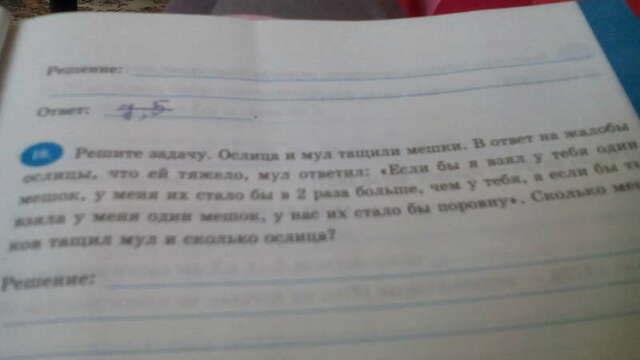 Решение:
Ответ:
Решите задачу. Ослица и мул тащили мешки. В ответ на жалобы
ослицы, что ей тяжело, мул ответил: «Если бы я взял у тебя один
мешок, у меня их стало бы в 2 раза больше, чем у тебя, а если бы т
взяла у меня один мешок, у нас их стало бы поровну». Сколько ме
ков тащил мул и сколько ослица?
Решение: